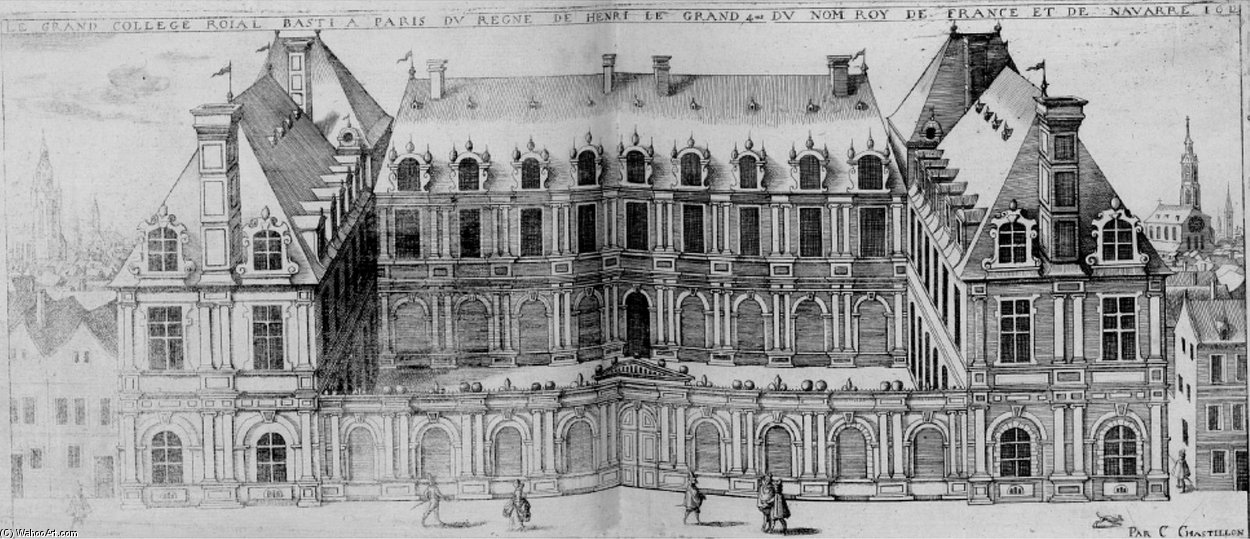 LE GRAND COLLEGE ROIAL BASTI A PARIS DV REGNE DE HENRI LE GRAND 4me DV NOM ROY DE FRANCE ET DE NAVARRE
PAR C CHASTILLON
(C) WahooArt.com